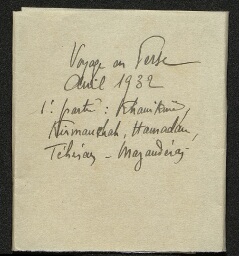 Voyage en Perse
Avril 1932
1e partie : Khanikin,
Kirmanchah, Hamadan,
Téhéran - Mazandéran